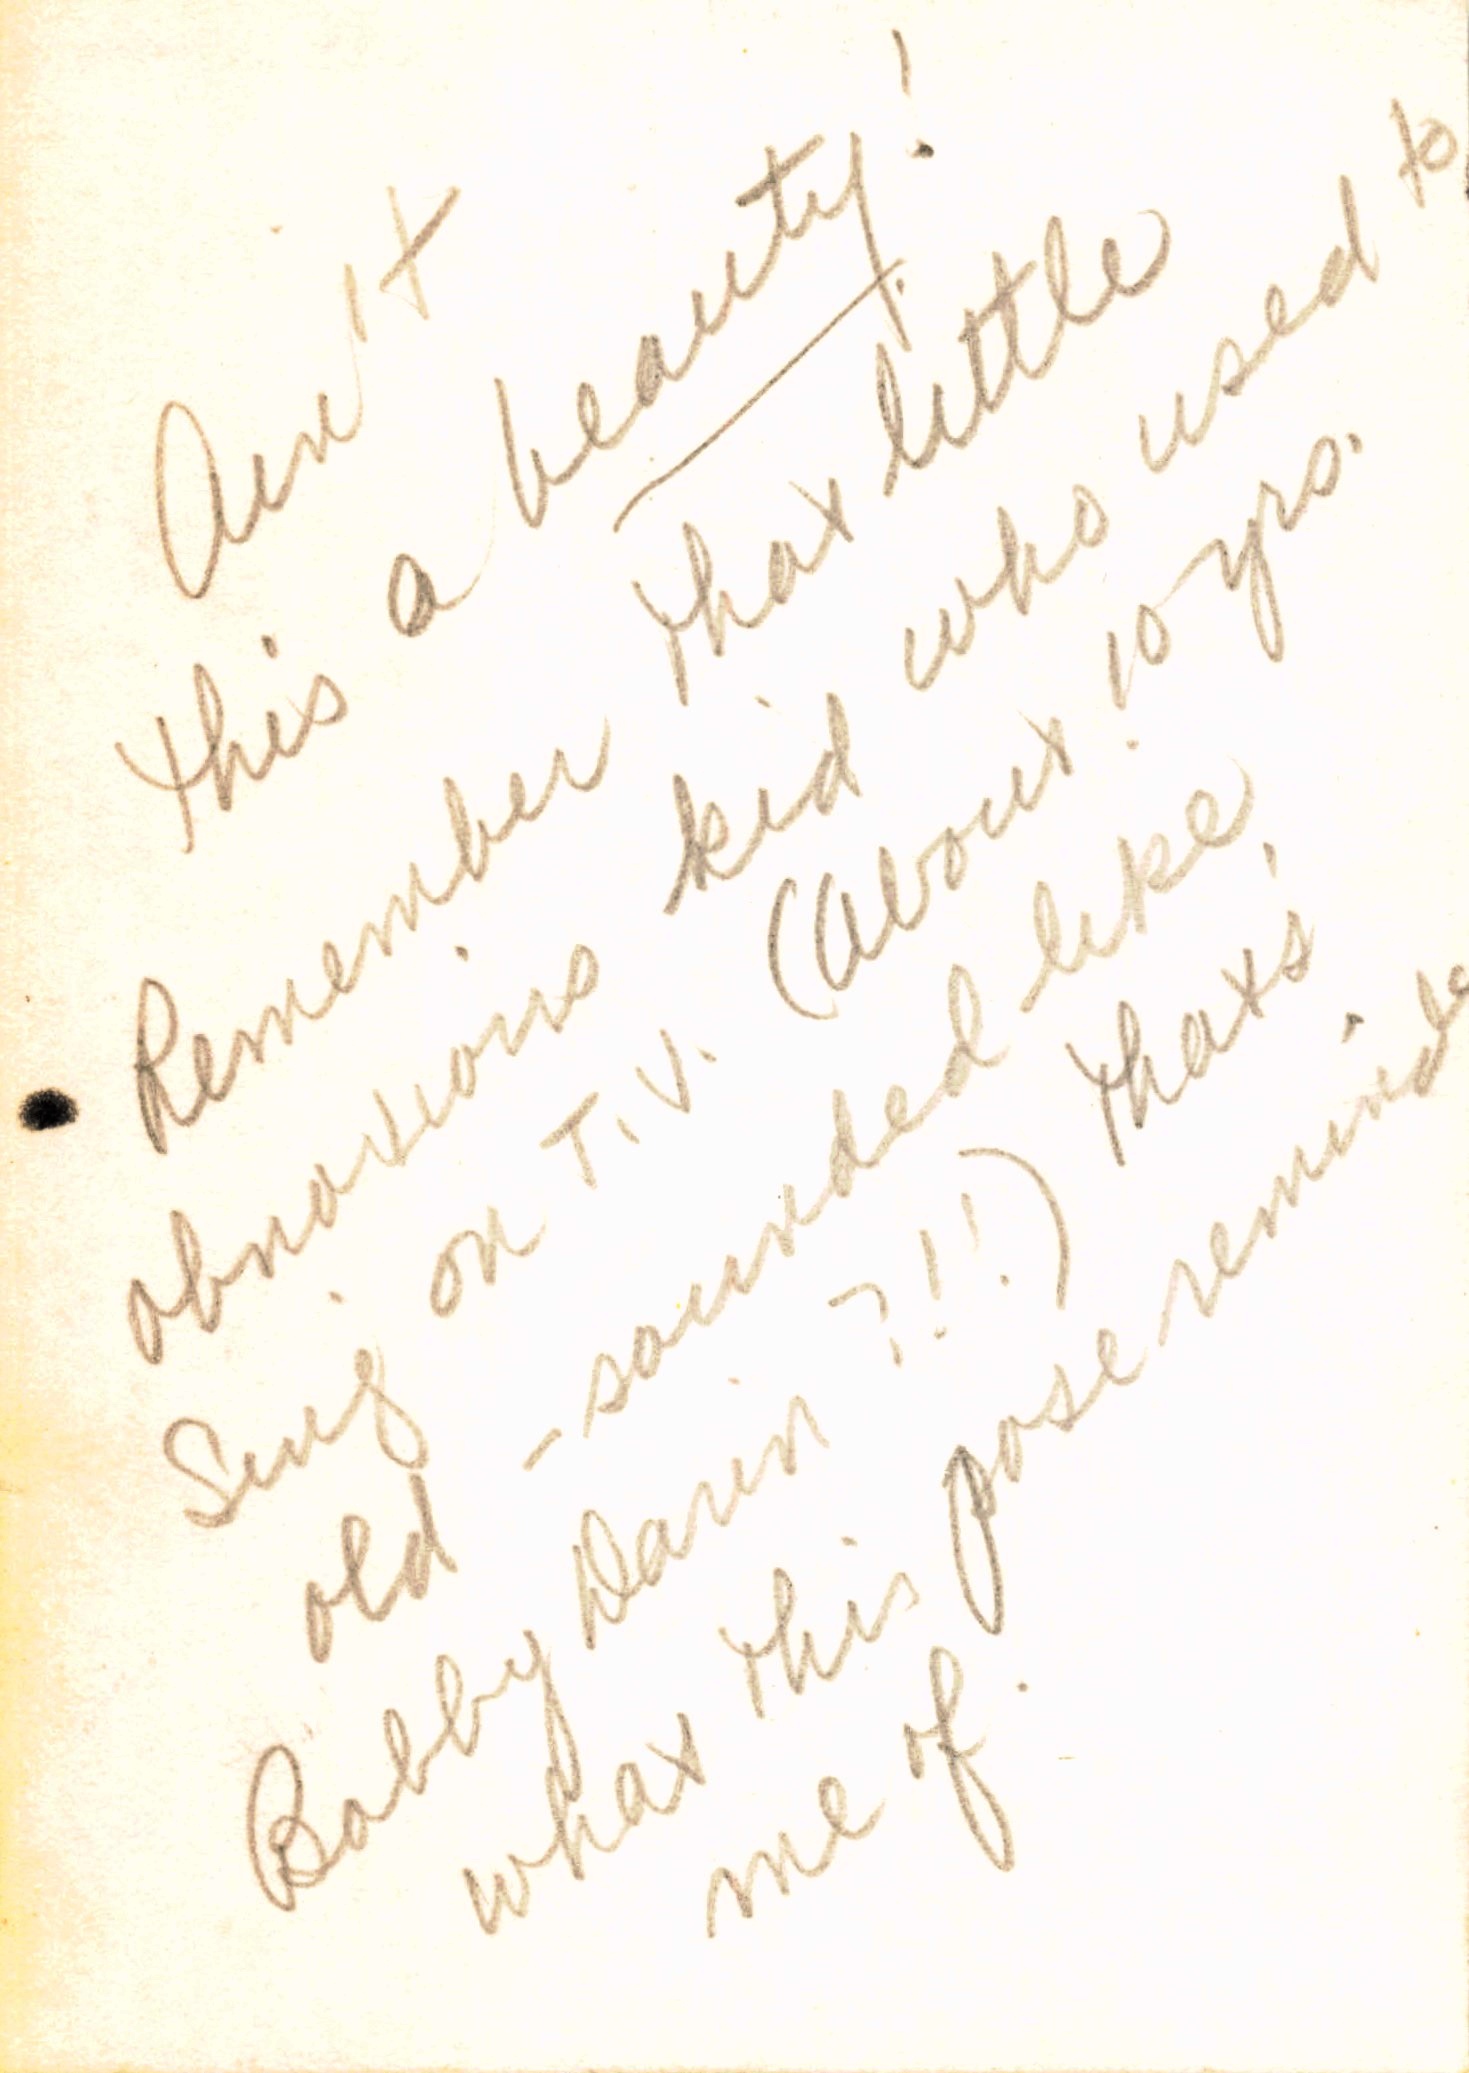 Ain't
this a beauty!
Remember that little
obnoxious kid who used to
sing on T.V. (about 10 yrs.
old - sounded like
Bobby Darin?!!) that's
what this pose reminds
me of.